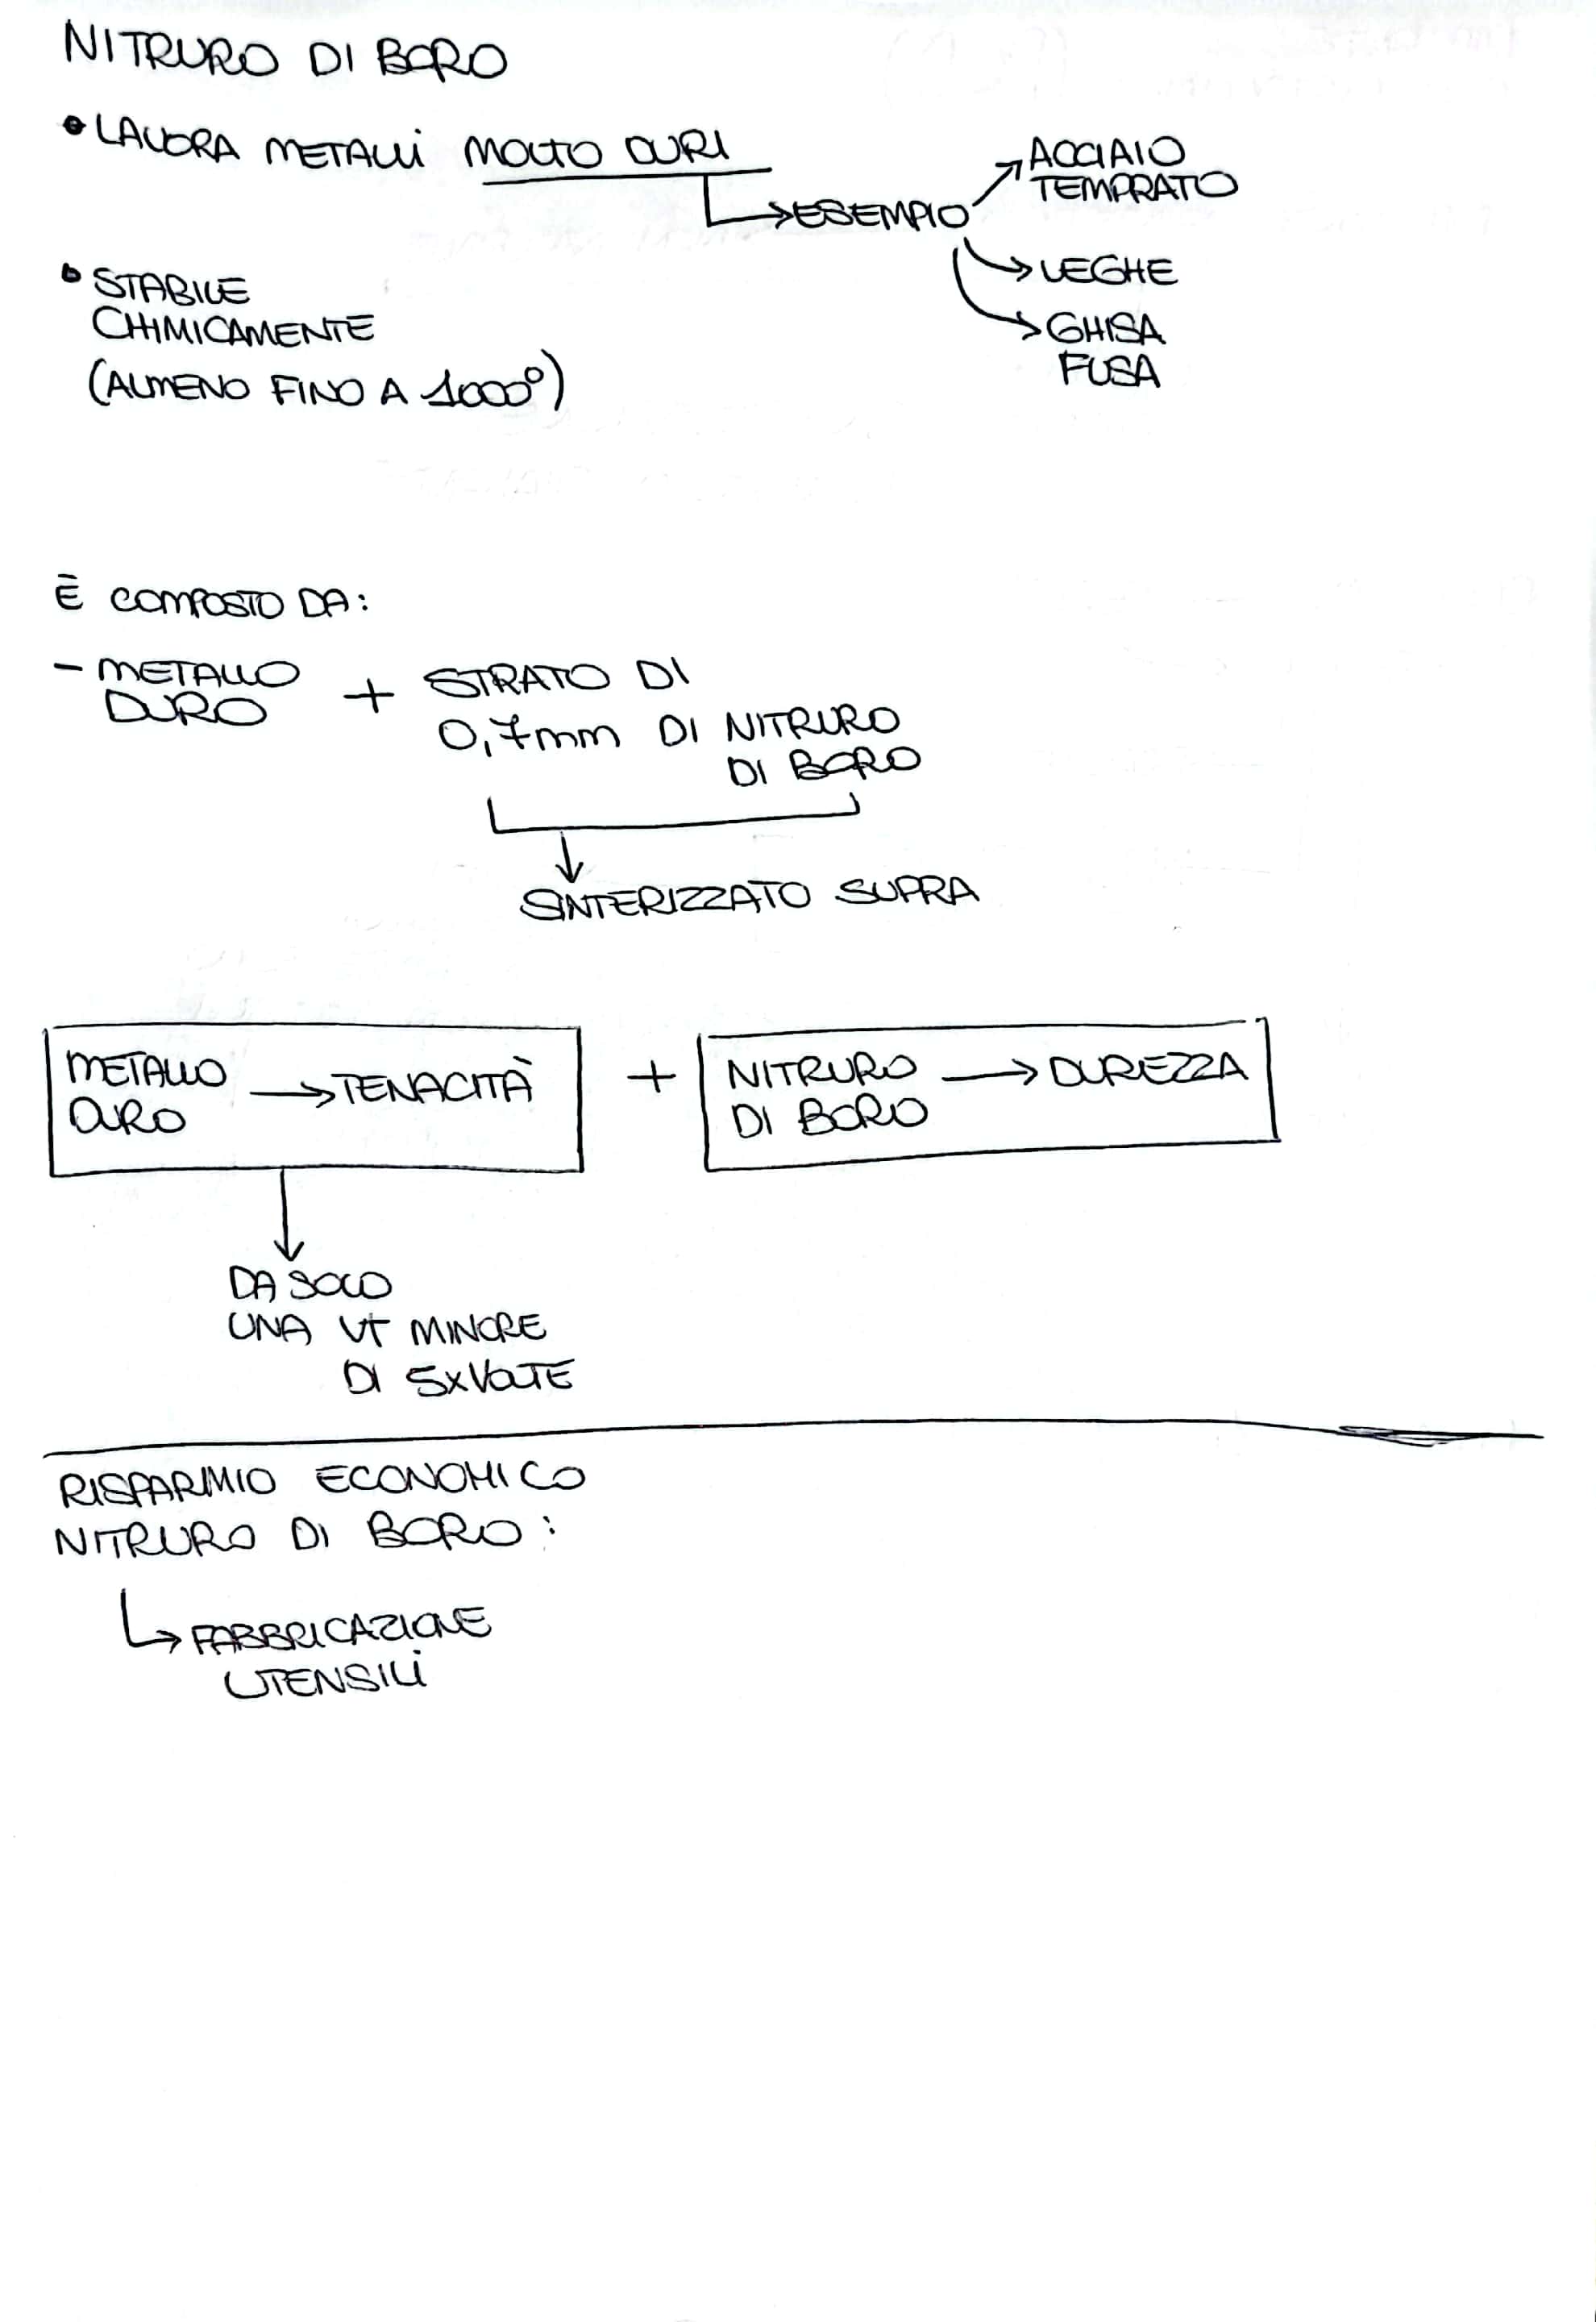 NITRURO DI BORO
• LAVORA METALLI MOLTO DURI
→ ESEMPIO
→ ACCIAIO
TEMPRATO
→ LEGHE
→ GHISA
FUSA
• STABILE
CHIMICAMENTE
(ALMENO FINO A 1000°)
È COMPOSTO DA:
- METALLO
DURO
+ STRATO DI
0,7mm DI NITRURO
DI BORO
↓
SINTERIZZATO SUPRA
METALLO → TENACITÀ
DURO
+
NITRURO → DUREZZA
DI BORO
↓
DA SOLO
UNA VT MINORE
DI 5xVOLTE
RISPARMIO ECONOMICO
NITRURO DI BORO:
→ FABBRICAZIONE
UTENSILI